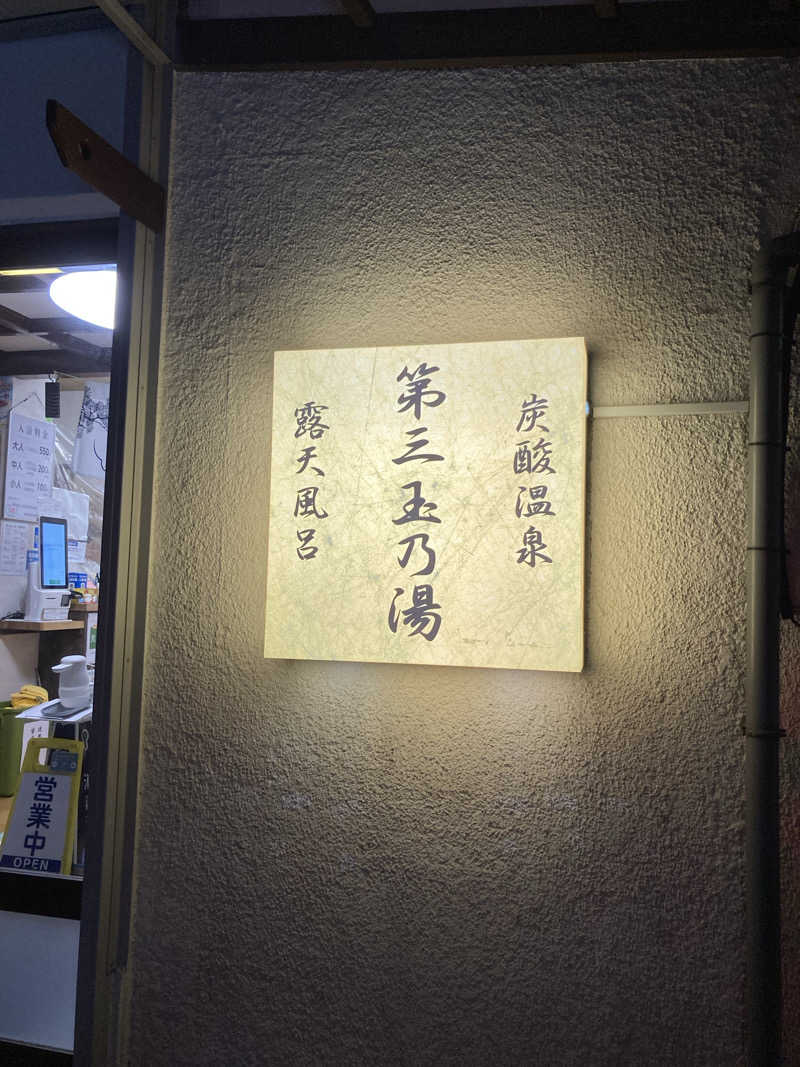 炭酸温泉
第三玉乃湯
露天風呂
入浴料金
大人 550
中人 200
小人 100
営業中
OPEN